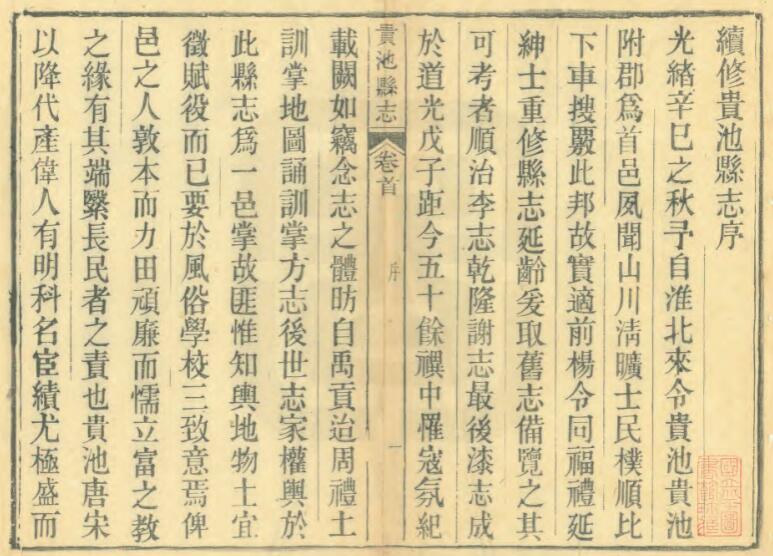 續修貴池縣志序
光緒辛巳之秋予自淮北來令貴池貴池
附郡爲首邑夙聞山川淸曠士民樸順比
下車搜覈此邦故實適前楊令同福禮延
紳士重修縣志延齡爰取舊志備覽之其
可考者順治李志乾隆謝志最後漆志成
於道光戊子距今五十餘禩中罹寇氛紀
貴池縣志
卷首
序
一
載闕如竊念志之體昉自禹貢迨周禮土
訓掌地圖誦訓掌方志後世志家權輿於
此縣志爲一邑掌故匪惟知輿地物土宜
徵賦役而已要於風俗學校三致意焉俾
邑之人敦本而力田頑廉而懦立富之教
之緣有其端緊長民者之責也貴池唐宋
以降代產偉人有明科名宦績尤極盛而